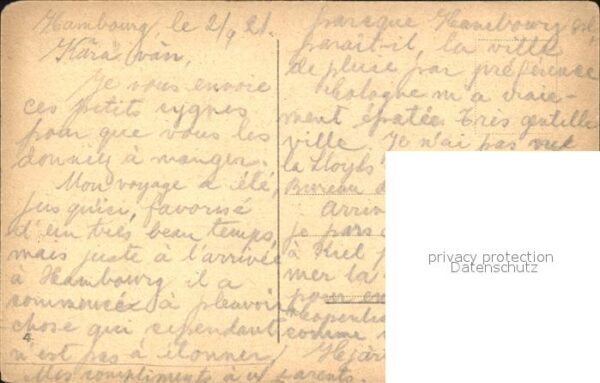 Hambourg, le 2/9 21.
Kära vän,
Je vous envoie
ces petits cygnes
pour que vous les
donniez à manger.
Mon voyage a été,
jusqu'ici, favorisé
d'un très beau temps,
mais juste à l'arrivée
à Hambourg il a
commencé à pleuvoir
chose qui cependant
n'est pas à étonner,
Mes compliments à vos parents.
4
parceque Hambourg est
parait-il, la ville
de pluie par préférence
Cologne m'a vraie-
ment épatée. Très gentille
ville. Je n'ai pas
la Lloyds
Bureau
je pars
à Kiel
mer la
pour
comme
privacy protection
Datenschutz